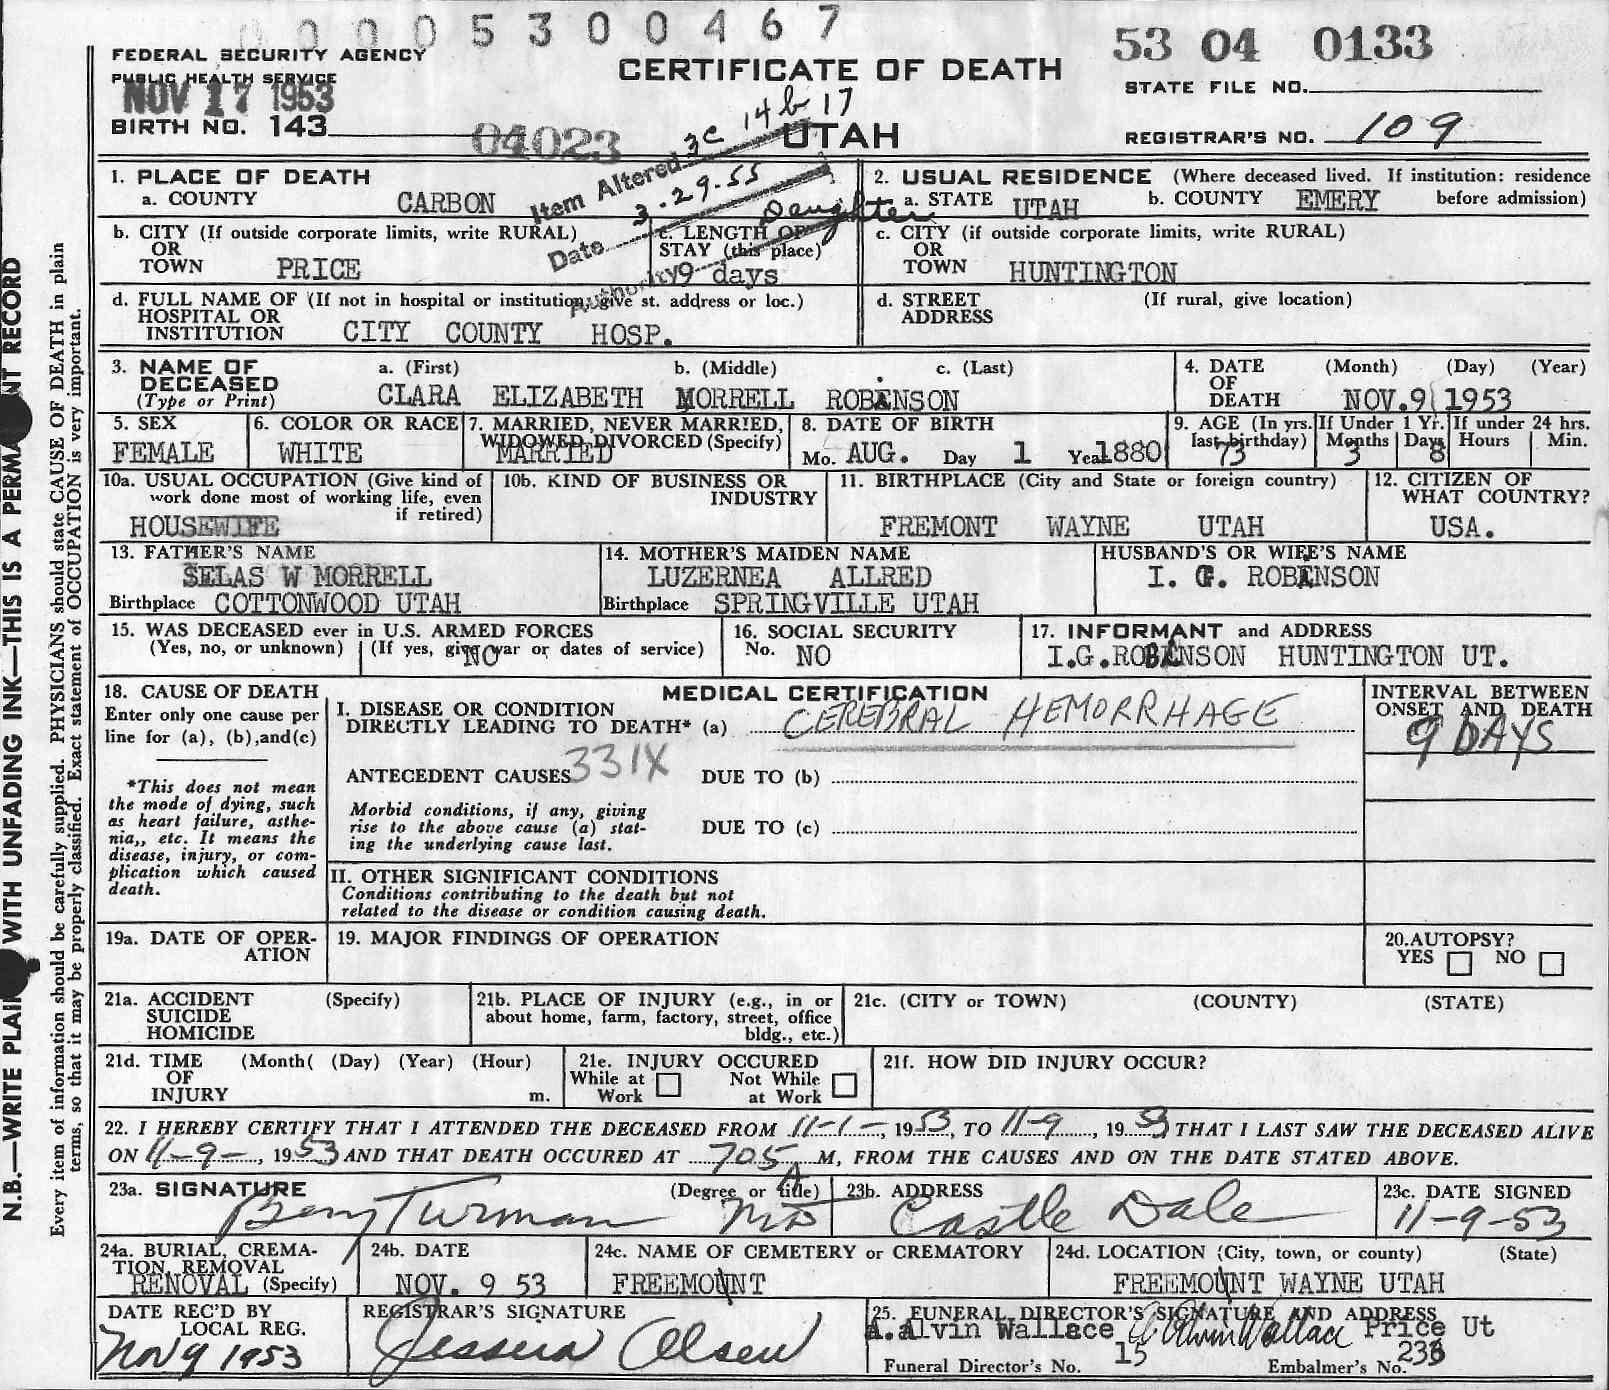 00005300467
53 04 0133
FEDERAL SECURITY AGENCY
PUBLIC HEALTH SERVICE
NOV 17 1953
CERTIFICATE OF DEATH
STATE FILE NO.
BIRTH NO. 143
04023
UTAH
REGISTRAR'S NO. 109
Item Altered 3c 14b 17
Date 3-29-55
Authority Daughter
1. PLACE OF DEATH
a. COUNTY CARBON
2. USUAL RESIDENCE (Where deceased lived. If institution: residence before admission)
a. STATE UTAH b. COUNTY EMERY
b. CITY (If outside corporate limits, write RURAL)
OR
TOWN PRICE
c. LENGTH OF
STAY (this place)
9 days
c. CITY (if outside corporate limits, write RURAL)
OR
TOWN HUNTINGTON
d. FULL NAME OF (If not in hospital or institution, give st. address or loc.)
HOSPITAL OR
INSTITUTION CITY COUNTY HOSP.
d. STREET (If rural, give location)
ADDRESS
3. NAME OF DECEASED
(Type or Print)
a. (First) b. (Middle) c. (Last)
CLARA ELIZABETH MORRELL ROBINSON
4. DATE OF DEATH
(Month) (Day) (Year)
NOV. 9 1953
5. SEX
FEMALE
6. COLOR OR RACE
WHITE
7. MARRIED, NEVER MARRIED,
WIDOWED DIVORCED (Specify)
MARRIED
8. DATE OF BIRTH
Mo. AUG. Day 1 Year 1880
9. AGE (In yrs. last birthday)
73
If Under 1 Yr.
Months 3 Days 8
If under 24 hrs.
Hours Min.
10a. USUAL OCCUPATION (Give kind of
work done most of working life, even
if retired)
HOUSEWIFE
10b. KIND OF BUSINESS OR
INDUSTRY
11. BIRTHPLACE (City and State or foreign country)
FREMONT WAYNE UTAH
12. CITIZEN OF
WHAT COUNTRY?
USA.
13. FATHER'S NAME
SELAS W MORRELL
Birthplace COTTONWOOD UTAH
14. MOTHER'S MAIDEN NAME
LUZERNEA ALLRED
Birthplace SPRINGVILLE UTAH
HUSBAND'S OR WIFE'S NAME
I. G. ROBINSON
15. WAS DECEASED ever in U.S. ARMED FORCES
(Yes, no, or unknown) (If yes, give war or dates of service)
NO
16. SOCIAL SECURITY
No. NO
17. INFORMANT and ADDRESS
I.G.ROBINSON HUNTINGTON UT.
18. CAUSE OF DEATH
Enter only one cause per
line for (a), (b),and(c)
*This does not mean
the mode of dying, such
as heart failure, asthe-
nia,, etc. It means the
disease, injury, or com-
plication which caused
death.
MEDICAL CERTIFICATION
I. DISEASE OR CONDITION
DIRECTLY LEADING TO DEATH* (a) CEREBRAL HEMORRHAGE
ANTECEDENT CAUSES 331X DUE TO (b)
Morbid conditions, if any, giving
rise to the above cause (a) stat-
ing the underlying cause last.
DUE TO (c)
II. OTHER SIGNIFICANT CONDITIONS
Conditions contributing to the death but not
related to the disease or condition causing death.
INTERVAL BETWEEN
ONSET AND DEATH
9 DAYS
19a. DATE OF OPER-
ATION
19. MAJOR FINDINGS OF OPERATION
20.AUTOPSY?
YES NO
21a. ACCIDENT (Specify)
SUICIDE
HOMICIDE
21b. PLACE OF INJURY (e.g., in or
about home, farm, factory, street, office
bldg., etc.)
21c. (CITY or TOWN) (COUNTY) (STATE)
21d. TIME (Month( (Day) (Year) (Hour)
OF
INJURY m.
21e. INJURY OCCURED
While at Work Not While at Work
21f. HOW DID INJURY OCCUR?
22. I HEREBY CERTIFY THAT I ATTENDED THE DECEASED FROM 11-1-, 1953, TO 11-9, 1953 THAT I LAST SAW THE DECEASED ALIVE
ON 11-9-, 1953 AND THAT DEATH OCCURED AT 705 A M, FROM THE CAUSES AND ON THE DATE STATED ABOVE.
23a. SIGNATURE (Degree or title)
Benj Turman MD
23b. ADDRESS
Castle Dale
23c. DATE SIGNED
11-9-53
24a. BURIAL, CREMA-
TION, REMOVAL
RENOVAL (Specify)
24b. DATE
NOV. 9 53
24c. NAME OF CEMETERY or CREMATORY
FREEMOUNT
24d. LOCATION (City, town, or county) (State)
FREEMOUNT WAYNE UTAH
DATE REC'D BY
LOCAL REG.
Nov 9 1953
REGISTRAR'S SIGNATURE
Jessica Olsen
25. FUNERAL DIRECTOR'S SIGNATURE AND ADDRESS
A.Alvin Wallace A Alvin Wallace Price Ut
Funeral Director's No. 15 Embalmer's No. 236
N.B.—WRITE PLAINLY WITH UNFADING INK—THIS IS A PERMANENT RECORD
Every item of information should be carefully supplied. PHYSICIANS should state CAUSE OF DEATH in plain
terms, so that it may be properly classified. Exact statement of OCCUPATION is very important.